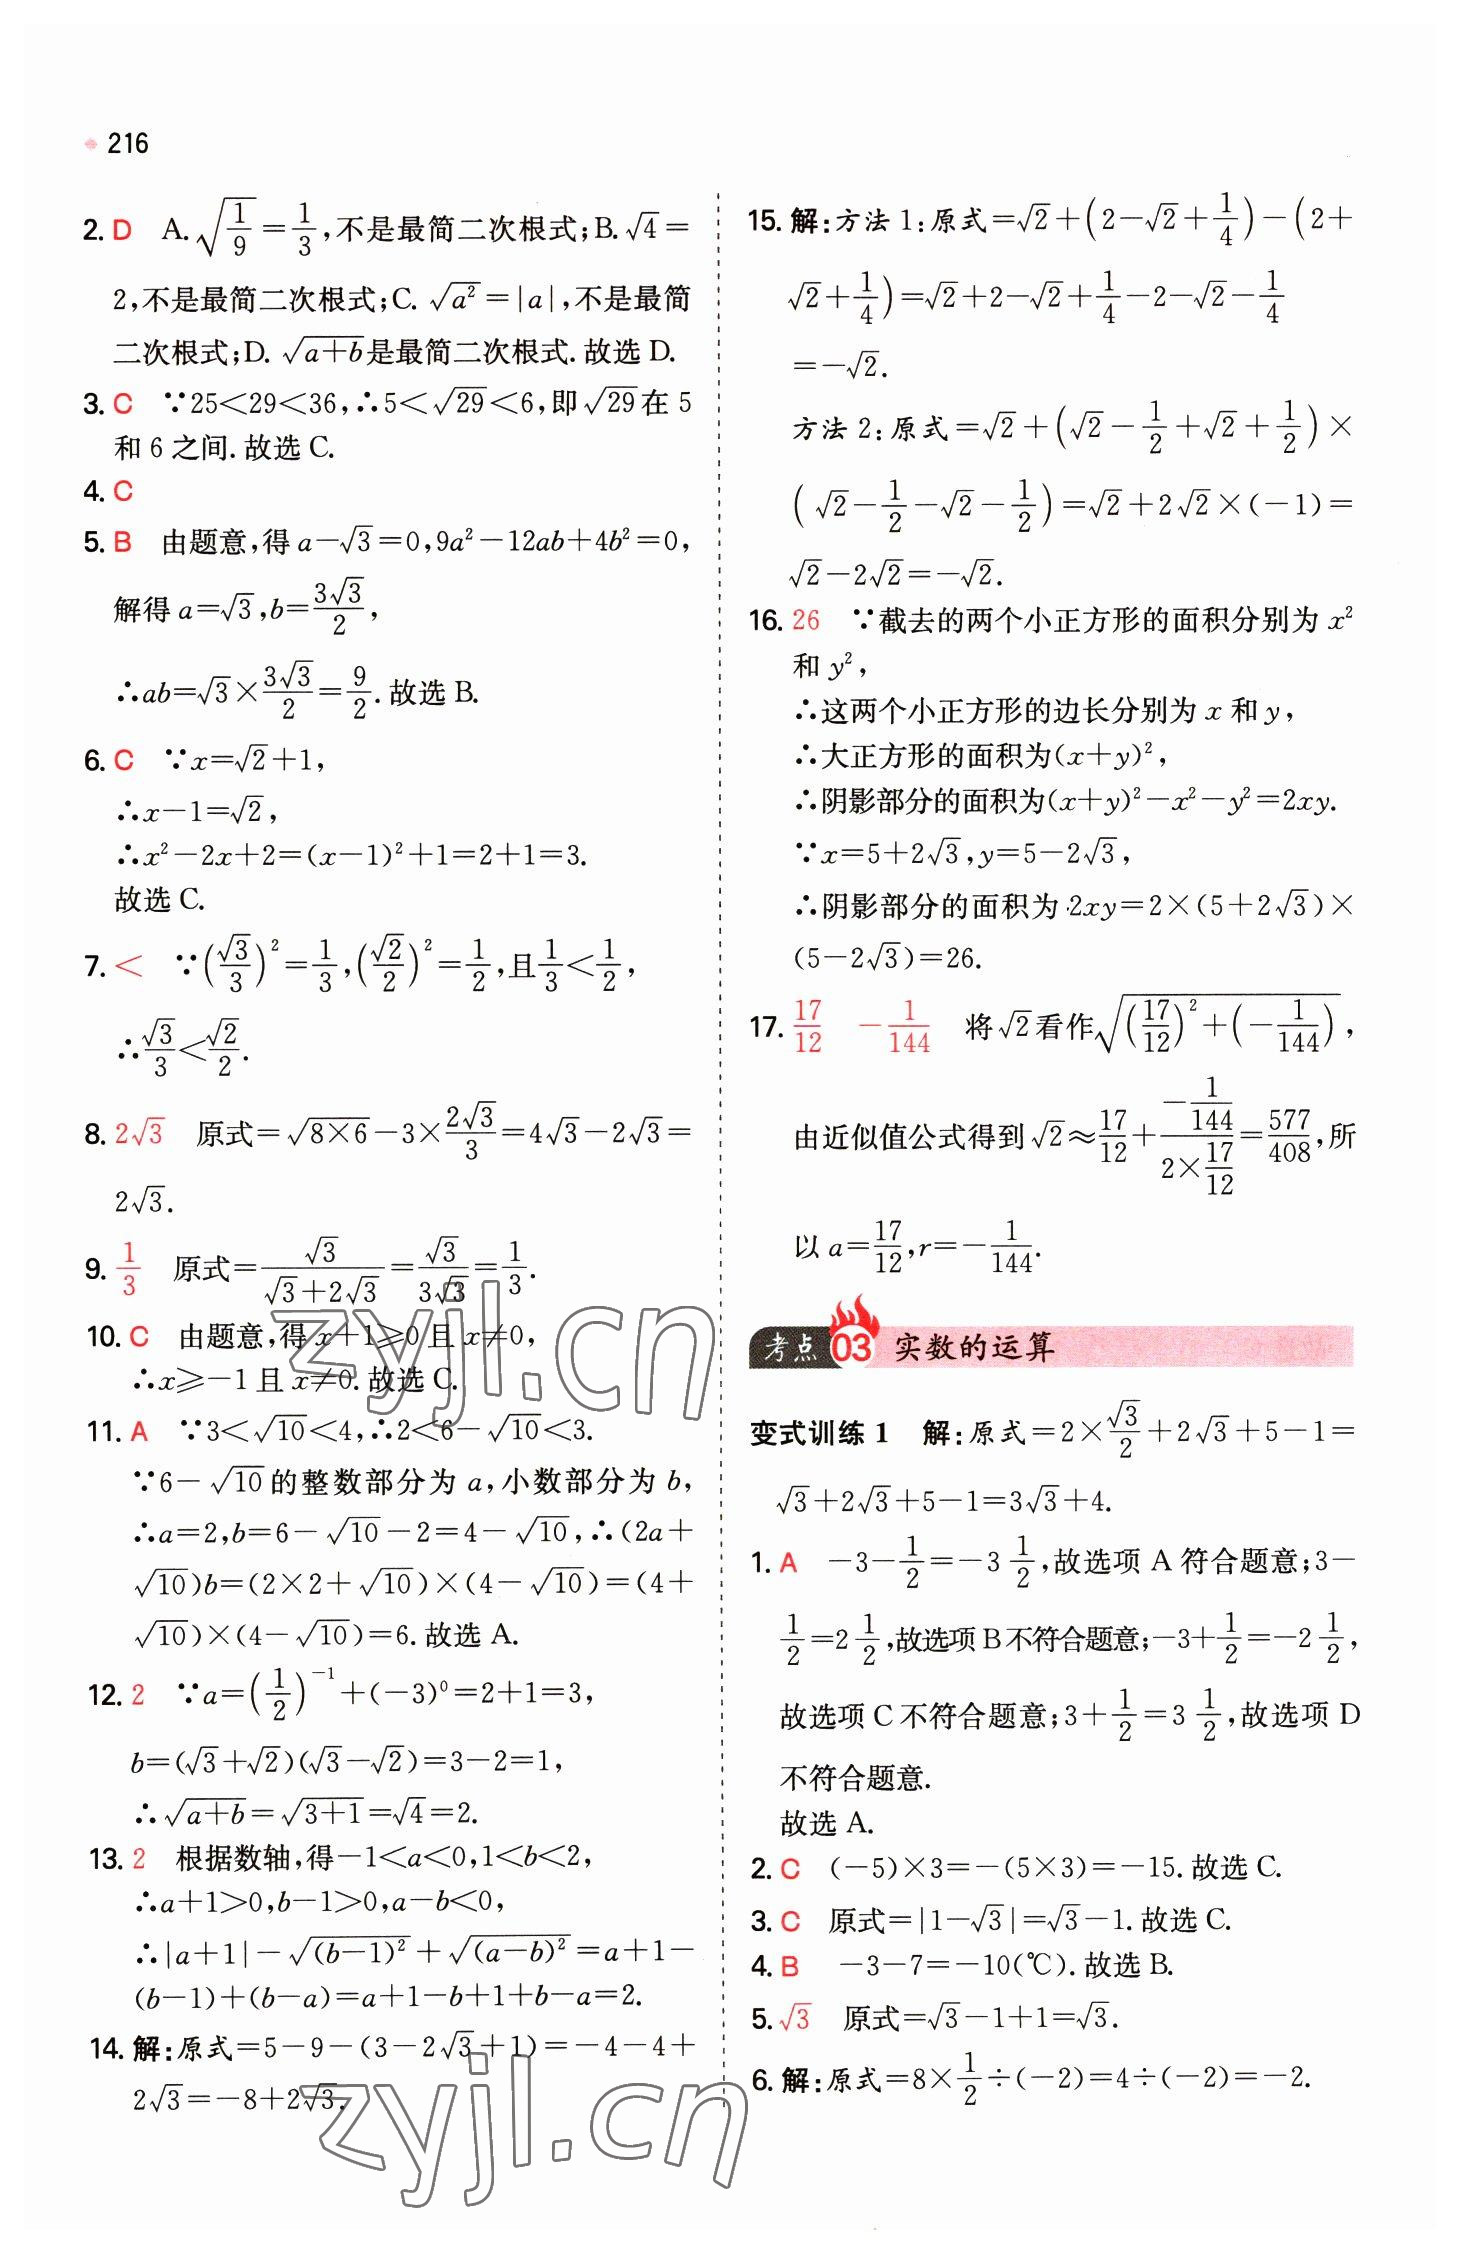 216
2. D A. √(1/9) = 1/3, 不是最简二次根式; B. √4 =
2, 不是最简二次根式; C. √(a²) = |a|, 不是最简
二次根式; D. √(a+b) 是最简二次根式. 故选 D.
3. C ∵25<29<36, ∴5<√29<6, 即√29在 5
和 6 之间. 故选 C.
4. C
5. B 由题意, 得 a-√3=0, 9a²-12ab+4b²=0,
解得 a=√3, b=3√3/2,
∴ab=√3×3√3/2=9/2. 故选 B.
6. C ∵x=√2+1,
∴x-1=√2,
∴x²-2x+2=(x-1)²+1=2+1=3.
故选 C.
7. < ∵(√3/3)²=1/3, (√2/2)²=1/2, 且1/3<1/2,
∴√3/3<√2/2.
8. 2√3 原式=√(8×6)-3×2√3/3=4√3-2√3=
2√3.
9. 1/3 原式=√3/(√3+2√3)=√3/(3√3)=1/3.
10. C 由题意, 得 x+1≥0 且 x≠0,
∴x≥-1 且 x≠0. 故选 C.
11. A ∵3<√10<4, ∴2<6-√10<3.
∵6-√10的整数部分为 a, 小数部分为 b,
∴a=2, b=6-√10-2=4-√10, ∴(2a+
√10)b=(2×2+√10)×(4-√10)=(4+
√10)×(4-√10)=6. 故选 A.
12. 2 ∵a=(1/2)⁻¹+(-3)⁰=2+1=3,
b=(√3+√2)(√3-√2)=3-2=1,
∴√(a+b)=√(3+1)=√4=2.
13. 2 根据数轴, 得-1<a<0, 1<b<2,
∴a+1>0, b-1>0, a-b<0,
∴|a+1|-√((b-1)²)+√((a-b)²)=a+1-
(b-1)+(b-a)=a+1-b+1+b-a=2.
14. 解: 原式=5-9-(3-2√3+1)=-4-4+
2√3=-8+2√3.
15. 解: 方法 1: 原式=√2+(2-√2+1/4)-(2+
√2+1/4)=√2+2-√2+1/4-2-√2-1/4
=-√2.
方法 2: 原式=√2+(√2-1/2+√2+1/2)×
(√2-1/2-√2-1/2)=√2+2√2×(-1)=
√2-2√2=-√2.
16. 26 ∵截去的两个小正方形的面积分别为 x²
和 y²,
∴这两个小正方形的边长分别为 x 和 y,
∴大正方形的面积为(x+y)²,
∴阴影部分的面积为(x+y)²-x²-y²=2xy.
∵x=5+2√3, y=5-2√3,
∴阴影部分的面积为 2xy=2×(5+2√3)×
(5-2√3)=26.
17. 17/12 -1/144 将√2看作√((17/12)²+(-1/144)),
由近似值公式得到√2≈17/12+(-1/144)/(2×17/12)=577/408, 所
以 a=17/12, r=-1/144.
考点 03 实数的运算
变式训练 1 解: 原式=2×√3/2+2√3+5-1=
√3+2√3+5-1=3√3+4.
1. A -3-1/2=-3 1/2, 故选项 A 符合题意; 3-
1/2=2 1/2, 故选项 B 不符合题意; -3+1/2=-2 1/2,
故选项 C 不符合题意; 3+1/2=3 1/2, 故选项 D
不符合题意.
故选 A.
2. C (-5)×3=-(5×3)=-15. 故选 C.
3. C 原式=|1-√3|=√3-1. 故选 C.
4. B -3-7=-10(℃). 故选 B.
5. √3 原式=√3-1+1=√3.
6. 解: 原式=8×1/2÷(-2)=4÷(-2)=-2.
zyjl.cn
zyjl.cn